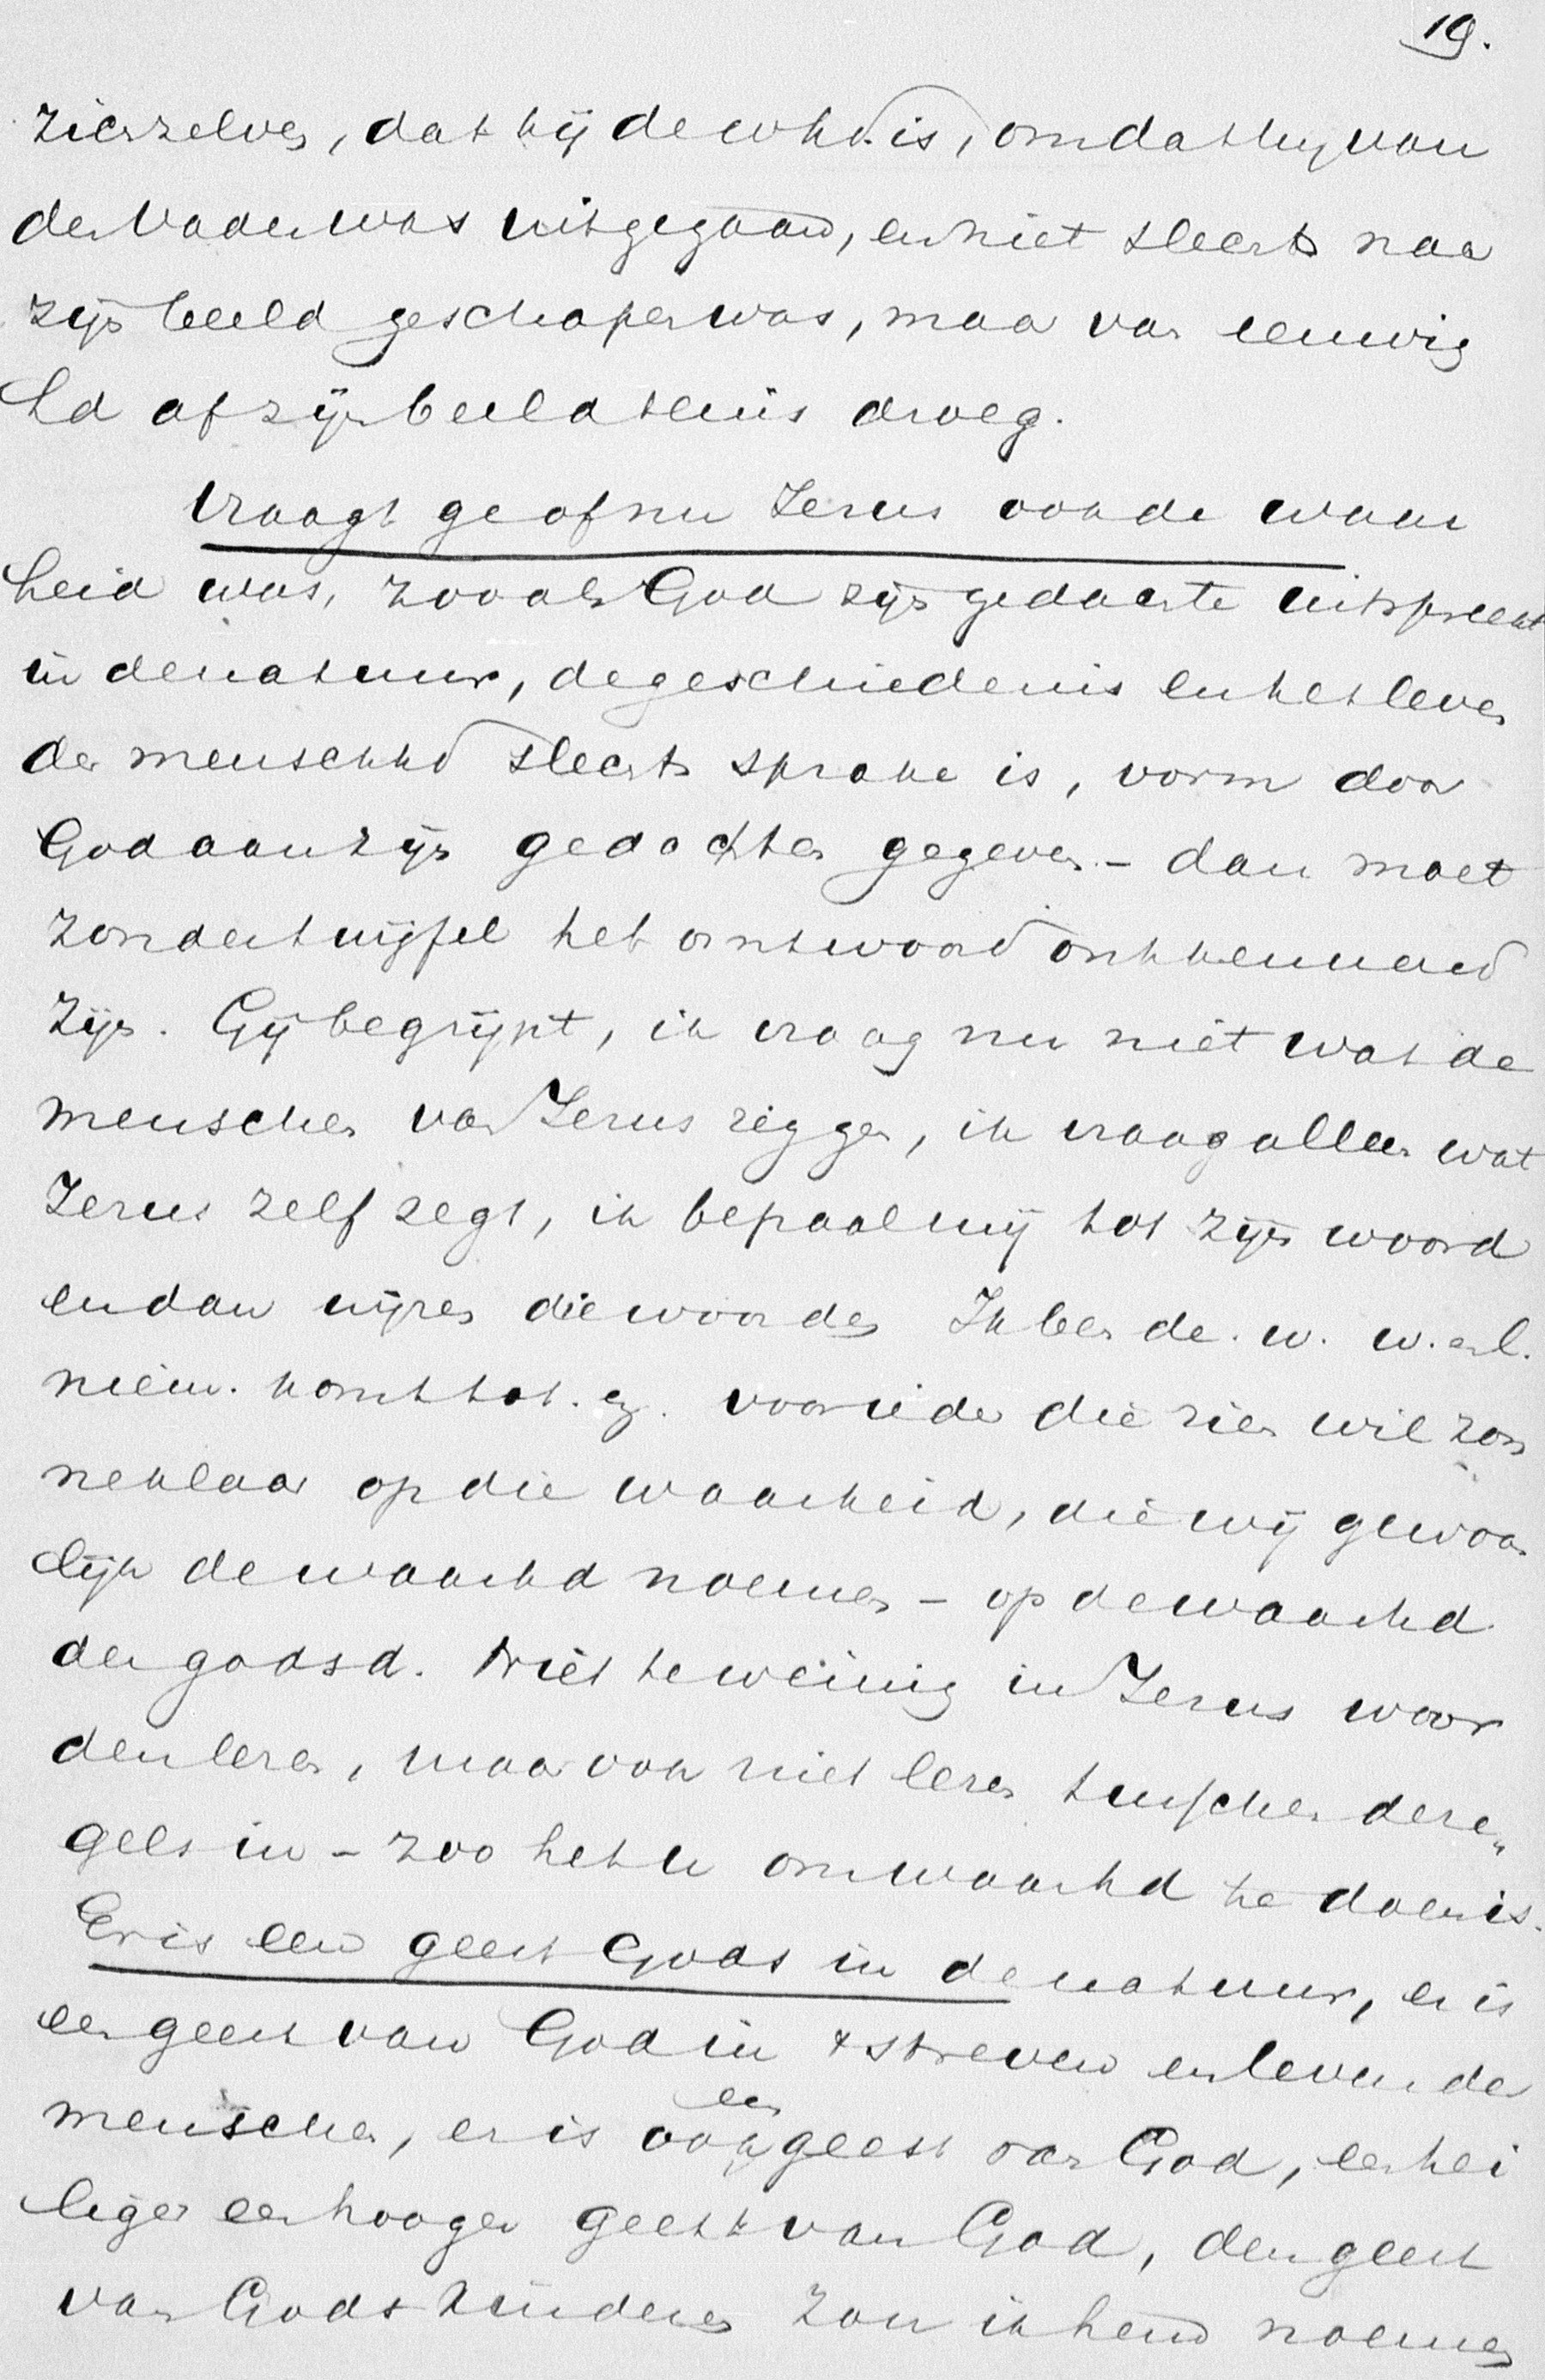 19.
zich zelven, dat hij de whd. is, omdat hij van
den Vader was uitgegaan, en niet slechts naar
zijn beeld geschapen was, maar van eeuwig
hd af zijn beeldtenis droeg.
Vraagt ge of nu Jezus ook de waar
heid was, zooals God zijn gedachte uitspreekt
in de natuur, de geschiedenis en het leven
der menschhd slechts sprake is, vorm door
God aan zijn gedachten gegeven - dan moet
zonder twijfel het antwoord ontkennend
zijn. Gij begrijpt, ik vraag nu niet wat de
menschen van Jezus zeggen, ik vraag alleen wat
Jezus zelf zegt, ik bepaal mij tot zijn woord
en dan wijzen die woorden Ik ben de. w. w. en l.
niem. komt tot. enz. voor ieder die zien wil zon
neklaar op die waarheid, die wij gewoon
lijk de waarhd noemen - op de waarhd
der godsd. Niet te weinig in Jezus woor
den lezen, maar ook niet lezen tusschen de re„
gels in - zoo het u om waarhd te doen is.
Er is een geest Gods in de natuur, er is
een geest van God in + streven en leven der
menschen, er is ook een geest van God, een hei
liger een hooger geest van God, den geest
van Gods kinderen zou ik hem noemen